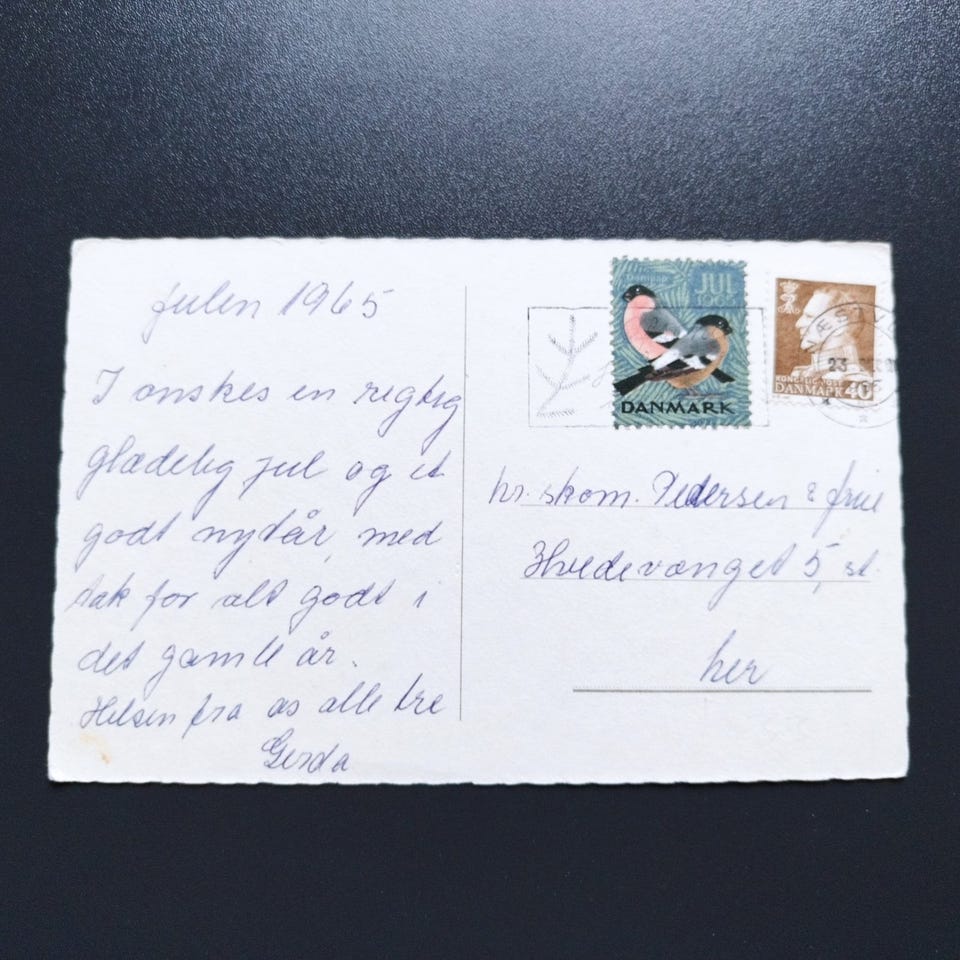 Julen 1965
I ønskes en rigtig
glædelig jul og et
godt nytår, med
tak for alt godt i
det gamle år.
Hilsen fra os alle tre
Gerda
JUL
1965
DANMARK
DANMARK 40
23
hr. skom. Pedersen & frue
Hvedevænget 5, st.
her